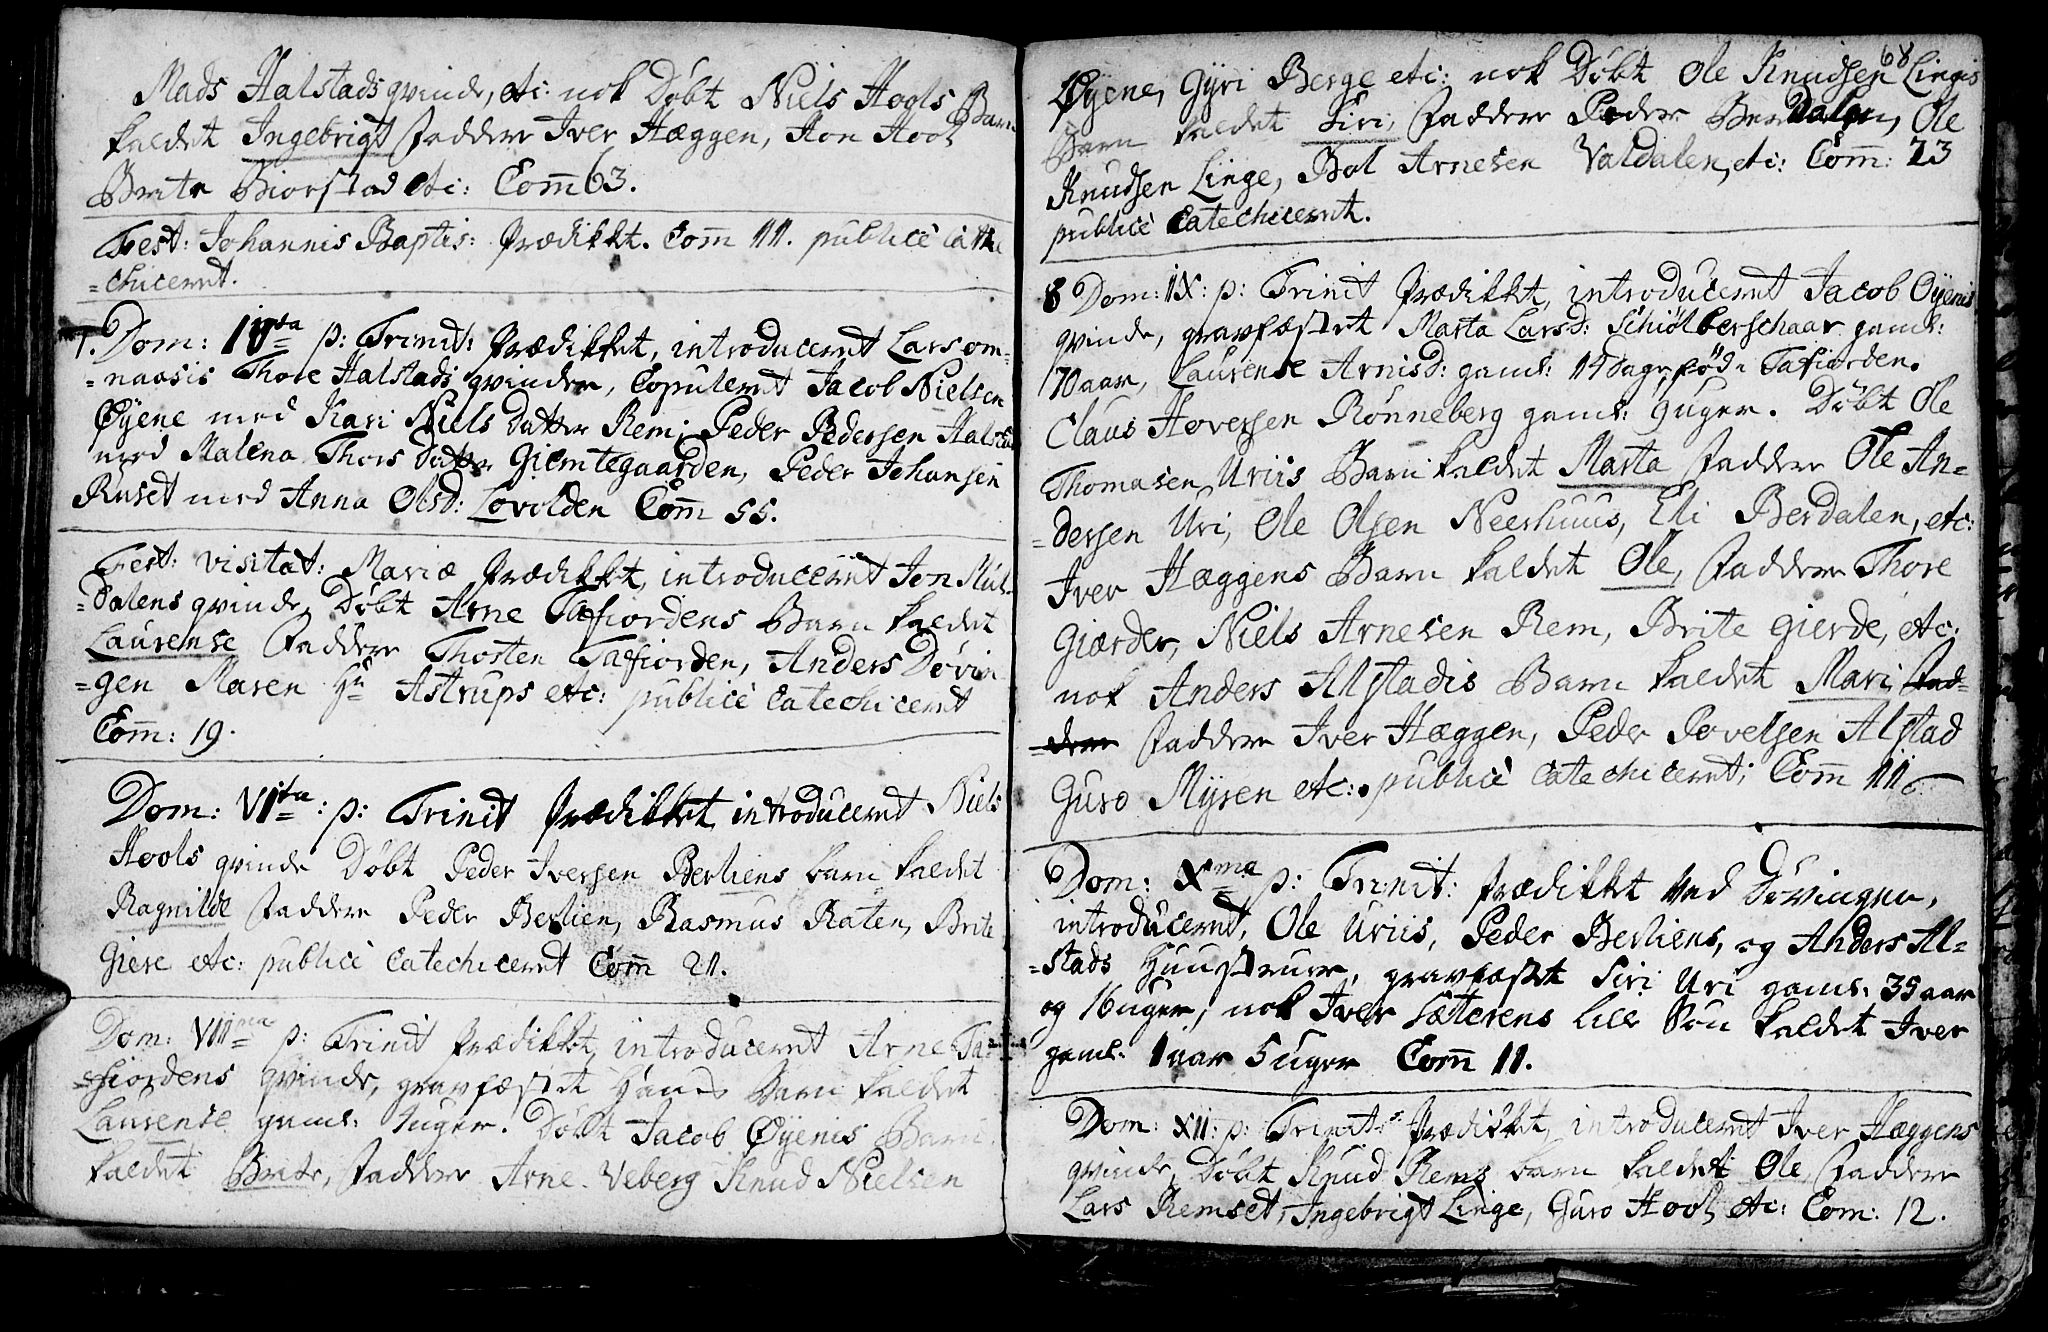 Mads Halstads qvinde, etc: nok Døbt Niels Hools Barn
kaldet Ingebrigt Faddere Iver Hæggen, Jon Hool
Brite Biorstad etc: Com̄ 63.
Fest: Johannis Baptis: Prædikket. Com̄ 11. publicè Cathe
=chiceret.
1. Dom: IVta p: Trinit: Prædikket, introduceret Lars om=
=naasis Thore Halstads qvinder, Copuleret Jacob Nielsen
Øyene med Kari Niels Datter Rem, Peder Pedersen Halstad
med Malena Thors Datter Giemtegaarden, Peder Johansen
Ruset med Anna Olsd: Lovolden Com̄ 55.
Fest: visitat: Mariæ Prædikket, introduceret Jon Mul-
=dalens qvinde, Døbt Arne Tafiordens Barn kaldet
Laurense Faddere Thosten Tafiorden, Anders Døvin
=gen Maren Hr Astrups etc: publicè Catechiceret
Com̄: 19.
Dom: VIta: p: Trinit Prædikket, introduceret Niels
Hools qvinde Døbt Peder Iversen Berliens barn kaldet
Ragnilde Faddere Peder Berlien, Rasmus Raten, Brite
Giere etc: publicè Catechiceret Com̄ 21.
Dom: VIIma p: Trinit Prædikket, introduceret Arne Ta=
=fiordens qvinde, gravfæstet Hans Barn kaldet
Laurense gaml: uger. Døbt Jacob Øyenis Barn
kaldet Brite, Faddere Arne Veberg Knud Nielsen
68
Øyene, Gyri Berge etc: nok Døbt Ole Knudsen Lingis
Barn kaldet Siri, Faddere Peder Berdalen, Ole
Knudsen Linge, Bol Arnesen Valdalen, etc: Com̄: 23
publicè Catechiceret.
8 Dom: IX: p: Trinit Prædikket, introduceret Jacob Øyenis
qvinde, gravfæstet Marta Larsd: Schiølberschaar gaml:
70 aar, Laurense Arnisd: gaml: 14 Dage fød i Tafiorden.
Claus Hoversen Rønneberg gaml: 9 uger. Døbt Ole
Thomasen Uriis Barn kaldet Marta Faddere Ole An=
=dersen Uri, Ole Olsen Neerhuus, Eli Berdalen, etc:
Iver Hæggens Barn kaldet Ole, Faddere Thore
Giærder, Niels Arnesen Rem, Brite Gierde, etc:
nok Anders Alstadis Barn kaldet Mari Fad=
=dere Faddere Iver Hæggen, Peder Povelsen Alstad
Guro Mysen etc: publicè Catechiceret; Com̄ 11
Dom: Xma p: Trinit: Prædikket ved Døvingen,
introduceret, Ole Uriis, Peder Berliens, og Anders Al=
=stads Huustruer, gravfæstet Siri Uri gaml: 39 aar
og 16 uger, nok Iver Sætterens lille Søn kaldet Iver
gaml: 1 aar 5 uger Com̄ 11.
Dom: XII: p: Trinit: Prædikket, introduceret Iver Hæggens
qvinde, Døbt Knud Rems barn kaldet Ole Faddere
Lars Remset, Ingebrigt Linge, Guro Hool, etc: Com: 12.